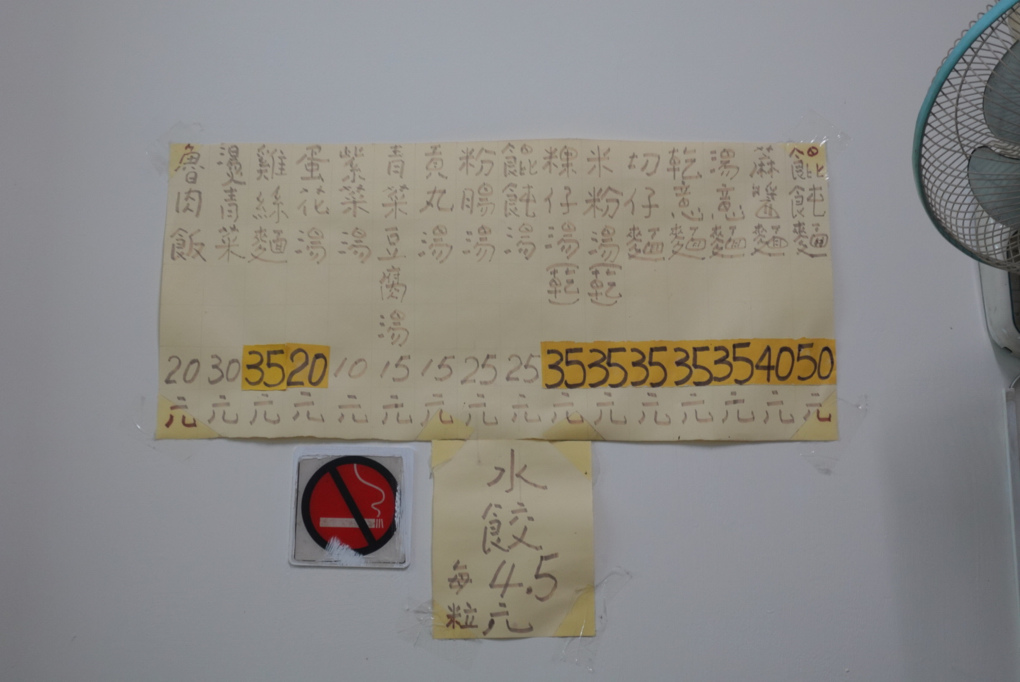 餛飩麵50元
麻醬麵40元
湯意麵35元
乾意麵35元
切仔麵35元
米粉湯(乾)35元
粿仔湯(乾)35元
餛飩湯25元
粉腸湯25元
貢丸湯15元
青菜豆腐湯15元
紫菜湯10元
蛋花湯20元
雞絲麵35元
燙青菜30元
魯肉飯20元
水餃
每粒4.5元